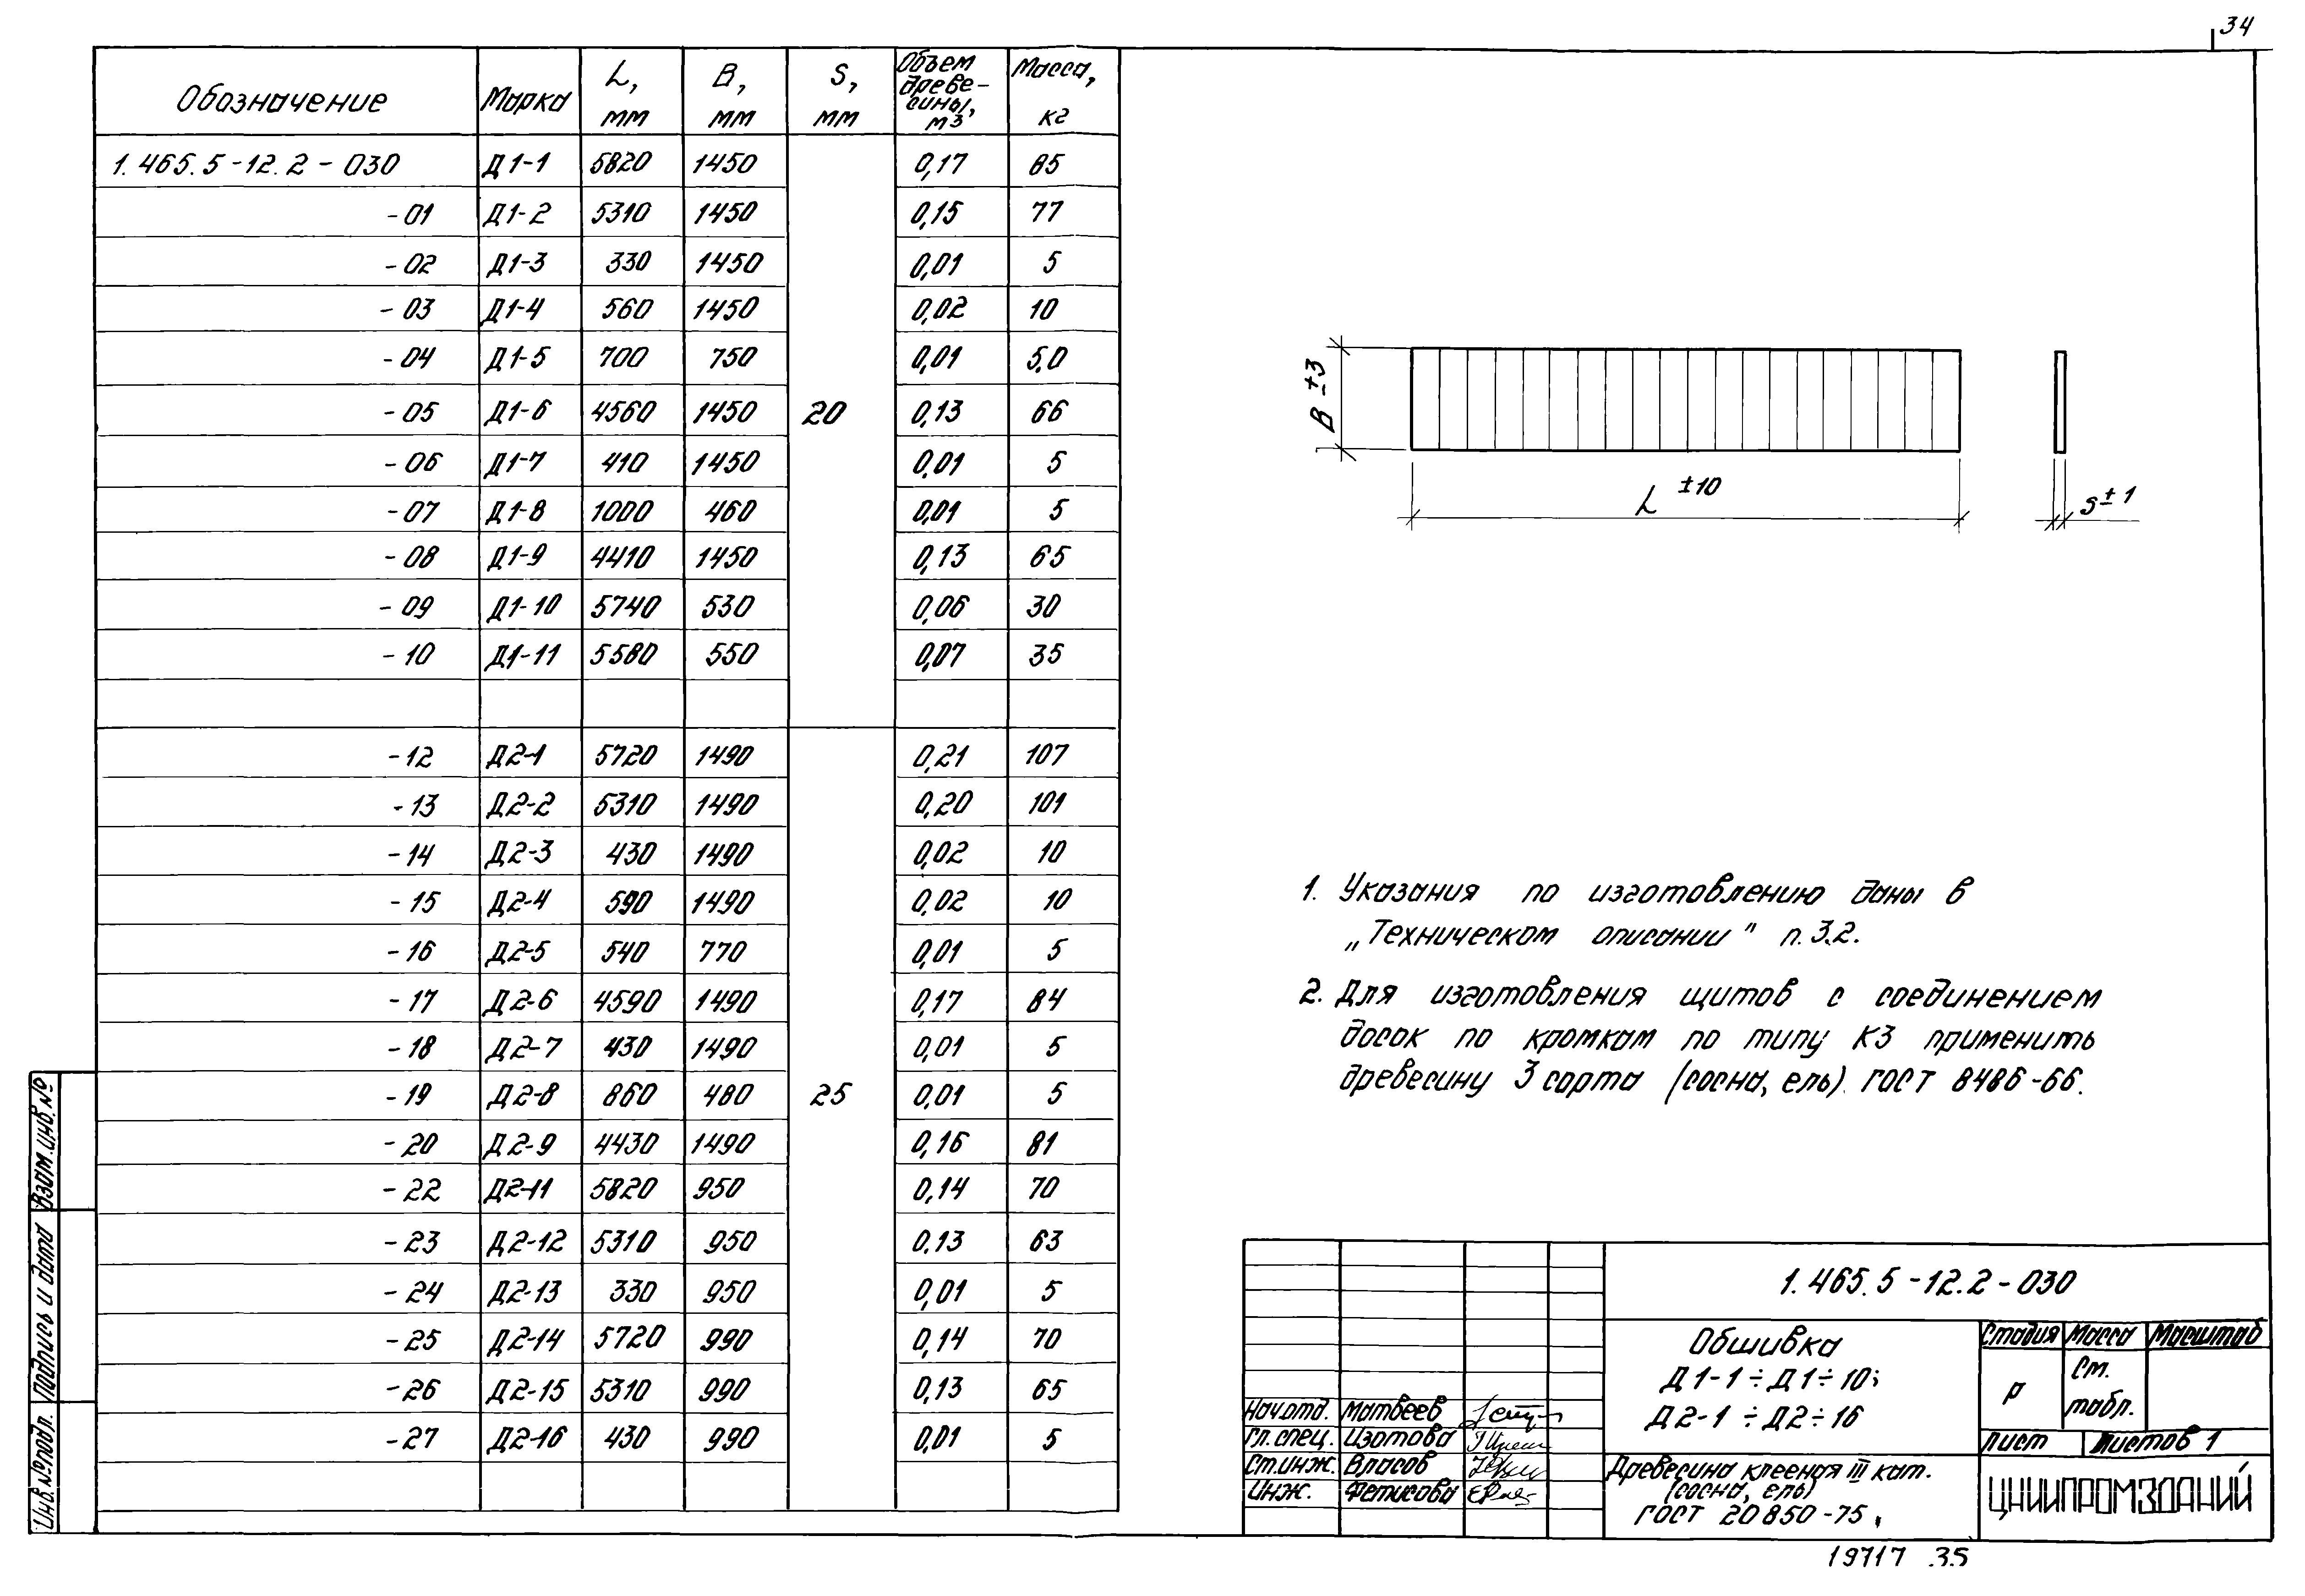 34
Обозначение Марка L, мм B, мм S, мм Объем древе-сины, м3 Масса, кг
1.465.5-12.2-030 Д1-1 5820 1450 0,17 85
-01 Д1-2 5310 1450 0,15 77
-02 Д1-3 330 1450 0,01 5
-03 Д1-4 560 1450 0,02 10
-04 Д1-5 700 750 0,01 5,0
-05 Д1-6 4560 1450 20 0,13 66
-06 Д1-7 410 1450 0,01 5
-07 Д1-8 1000 460 0,01 5
-08 Д1-9 4410 1450 0,13 65
-09 Д1-10 5740 530 0,06 30
-10 Д1-11 5580 550 0,07 35
-12 Д2-1 5720 1490 0,21 107
-13 Д2-2 5310 1490 0,20 101
-14 Д2-3 430 1490 0,02 10
-15 Д2-4 590 1490 0,02 10
-16 Д2-5 540 770 0,01 5
-17 Д2-6 4590 1490 0,17 84
-18 Д2-7 430 1490 0,01 5
-19 Д2-8 860 480 25 0,01 5
-20 Д2-9 4430 1490 0,16 81
-22 Д2-11 5820 950 0,14 70
-23 Д2-12 5310 950 0.13 63
-24 Д2-13 330 950 0,01 5
-25 Д2-14 5720 990 0,14 70
-26 Д2-15 5310 990 0,13 65
-27 Д2-16 430 990 0,01 5
B ±3
L ±10
S ±1
1. Указания по изготовлению даны в
„Техническом описании" п.3.2.
2. Для изготовления щитов с соединением
досок по кромкам по типу К3 применить
древесину 3 сорта (сосна, ель). ГОСТ 8486-66.
1.465.5-12.2-030
Обшивка
Д1-1÷Д1÷10;
Д2-1÷Д2÷16
Стадия Масса Масштаб
Р См. табл.
Лист Листов 1
Нач.отд. Матвеев
Гл.спец. Изотова
Ст.инж. Власов
Инж. Фетисова
Древесина клееная III кат.
(сосна, ель)
ГОСТ 20850-75.
ЦНИИПРОМЗДАНИЙ
Взам.инв.№
Подпись и дата
Инв.№подл.
19717 35